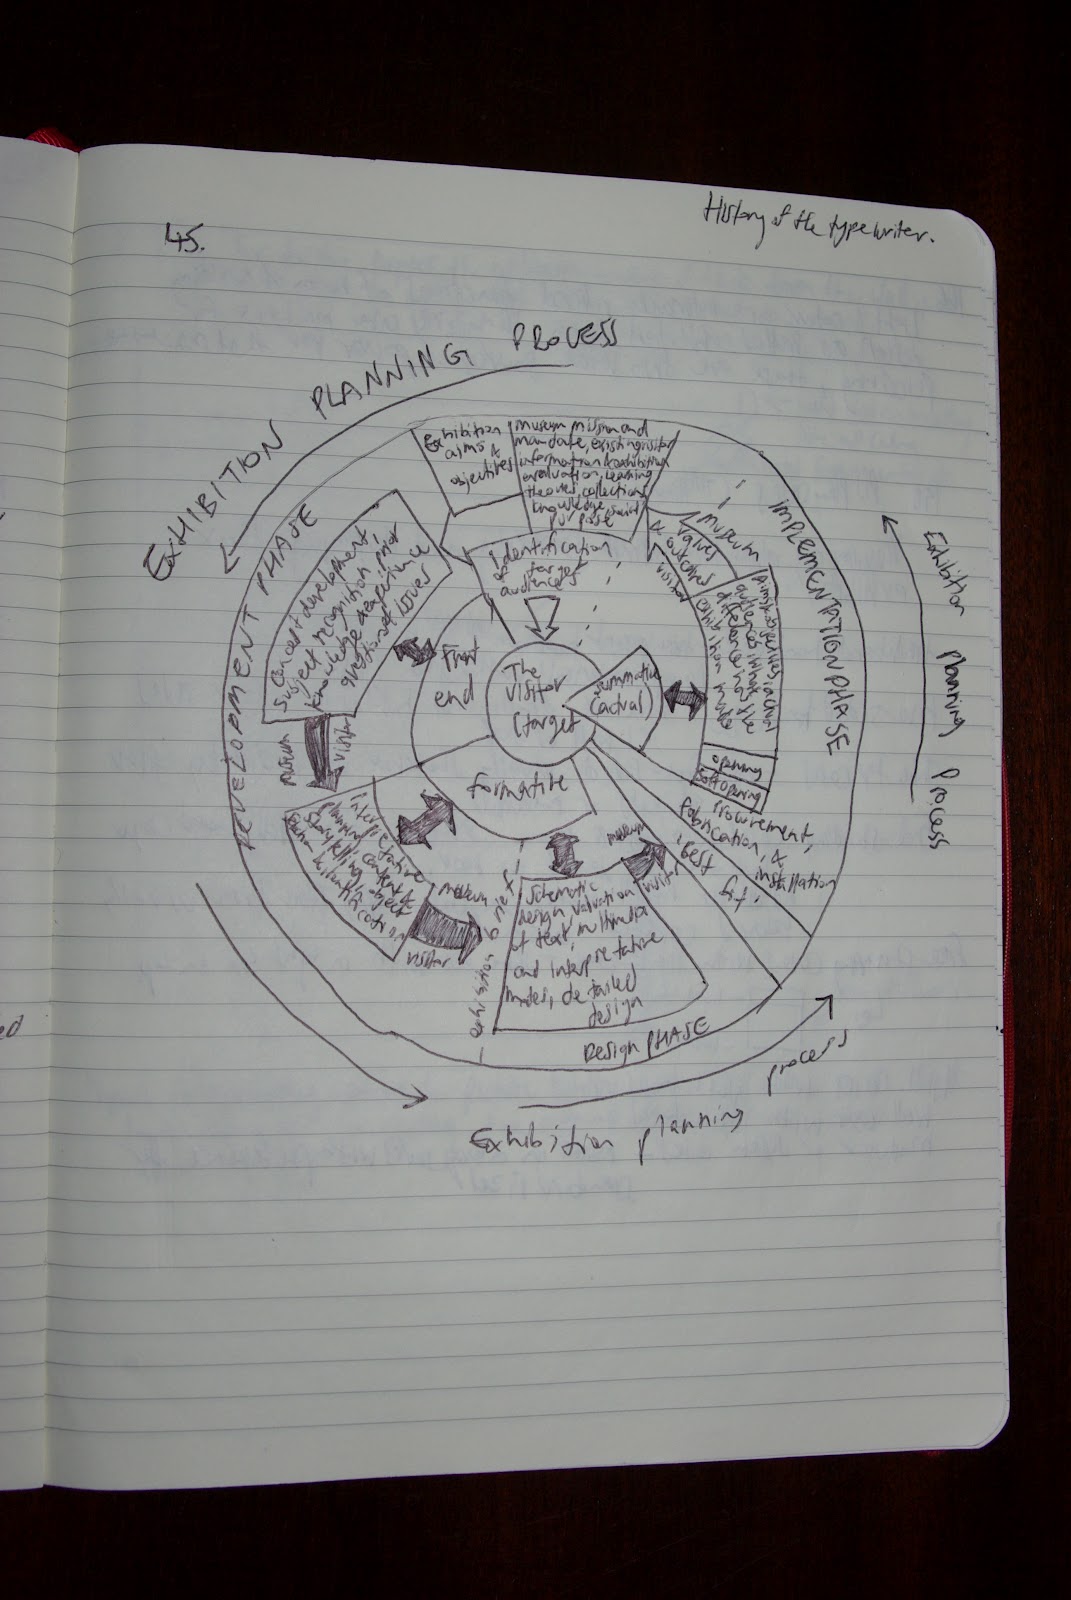 45.
History of the typewriter.
EXHIBITION PLANNING PROCESS
DEVELOPMENT PHASE
IMPLEMENTATION PHASE
Exhibition Planning Process
Exhibition
aims &
objectives
museum mission and
mandate, existing visitor
information & exhibition
evaluation, learning
theories, collections
knowledge, social
purpose
identification
of target
audiences
The
visitor
(target
Front
end
formative
summative
(actual)
Concept development,
subject recognition, prior
knowledge & experience
questions of
museum
visitor
interpretative
planning, content &
storytelling, object
museum
visitor
exhibition brief
schematic
design,
of text, multimedia
and interpretative
modes, detailed
design
museum
visitor
museum
values
& outcomes
visitor
aims & objectives in actual
audiences
exhibition
opening
soft opening
procurement,
fabrication, &
installation
test
fit
Design PHASE
Exhibition planning process